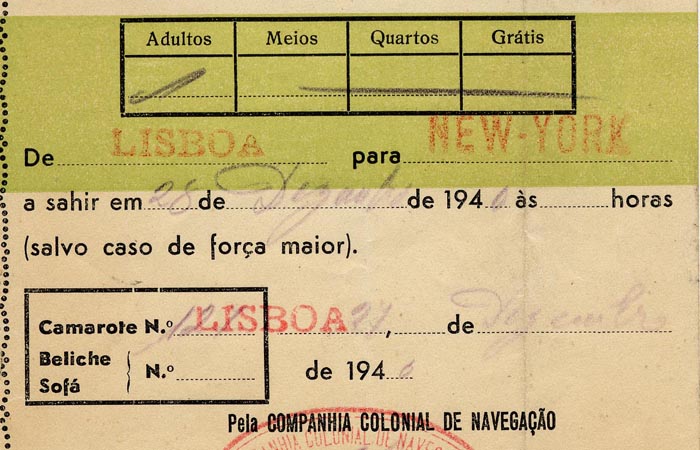 Adultos Meios Quartos Grátis
De LISBOA para NEW-YORK
a sahir em 28 de Dezembro de 1940 às horas
(salvo caso de força maior).
Camarote N.º LISBOA 27, de Dezembro
Beliche
Sofá N.º
de 1940
Pela COMPANHIA COLONIAL DE NAVEGAÇÃO
COMPANHIA COLONIAL DE NAVEG